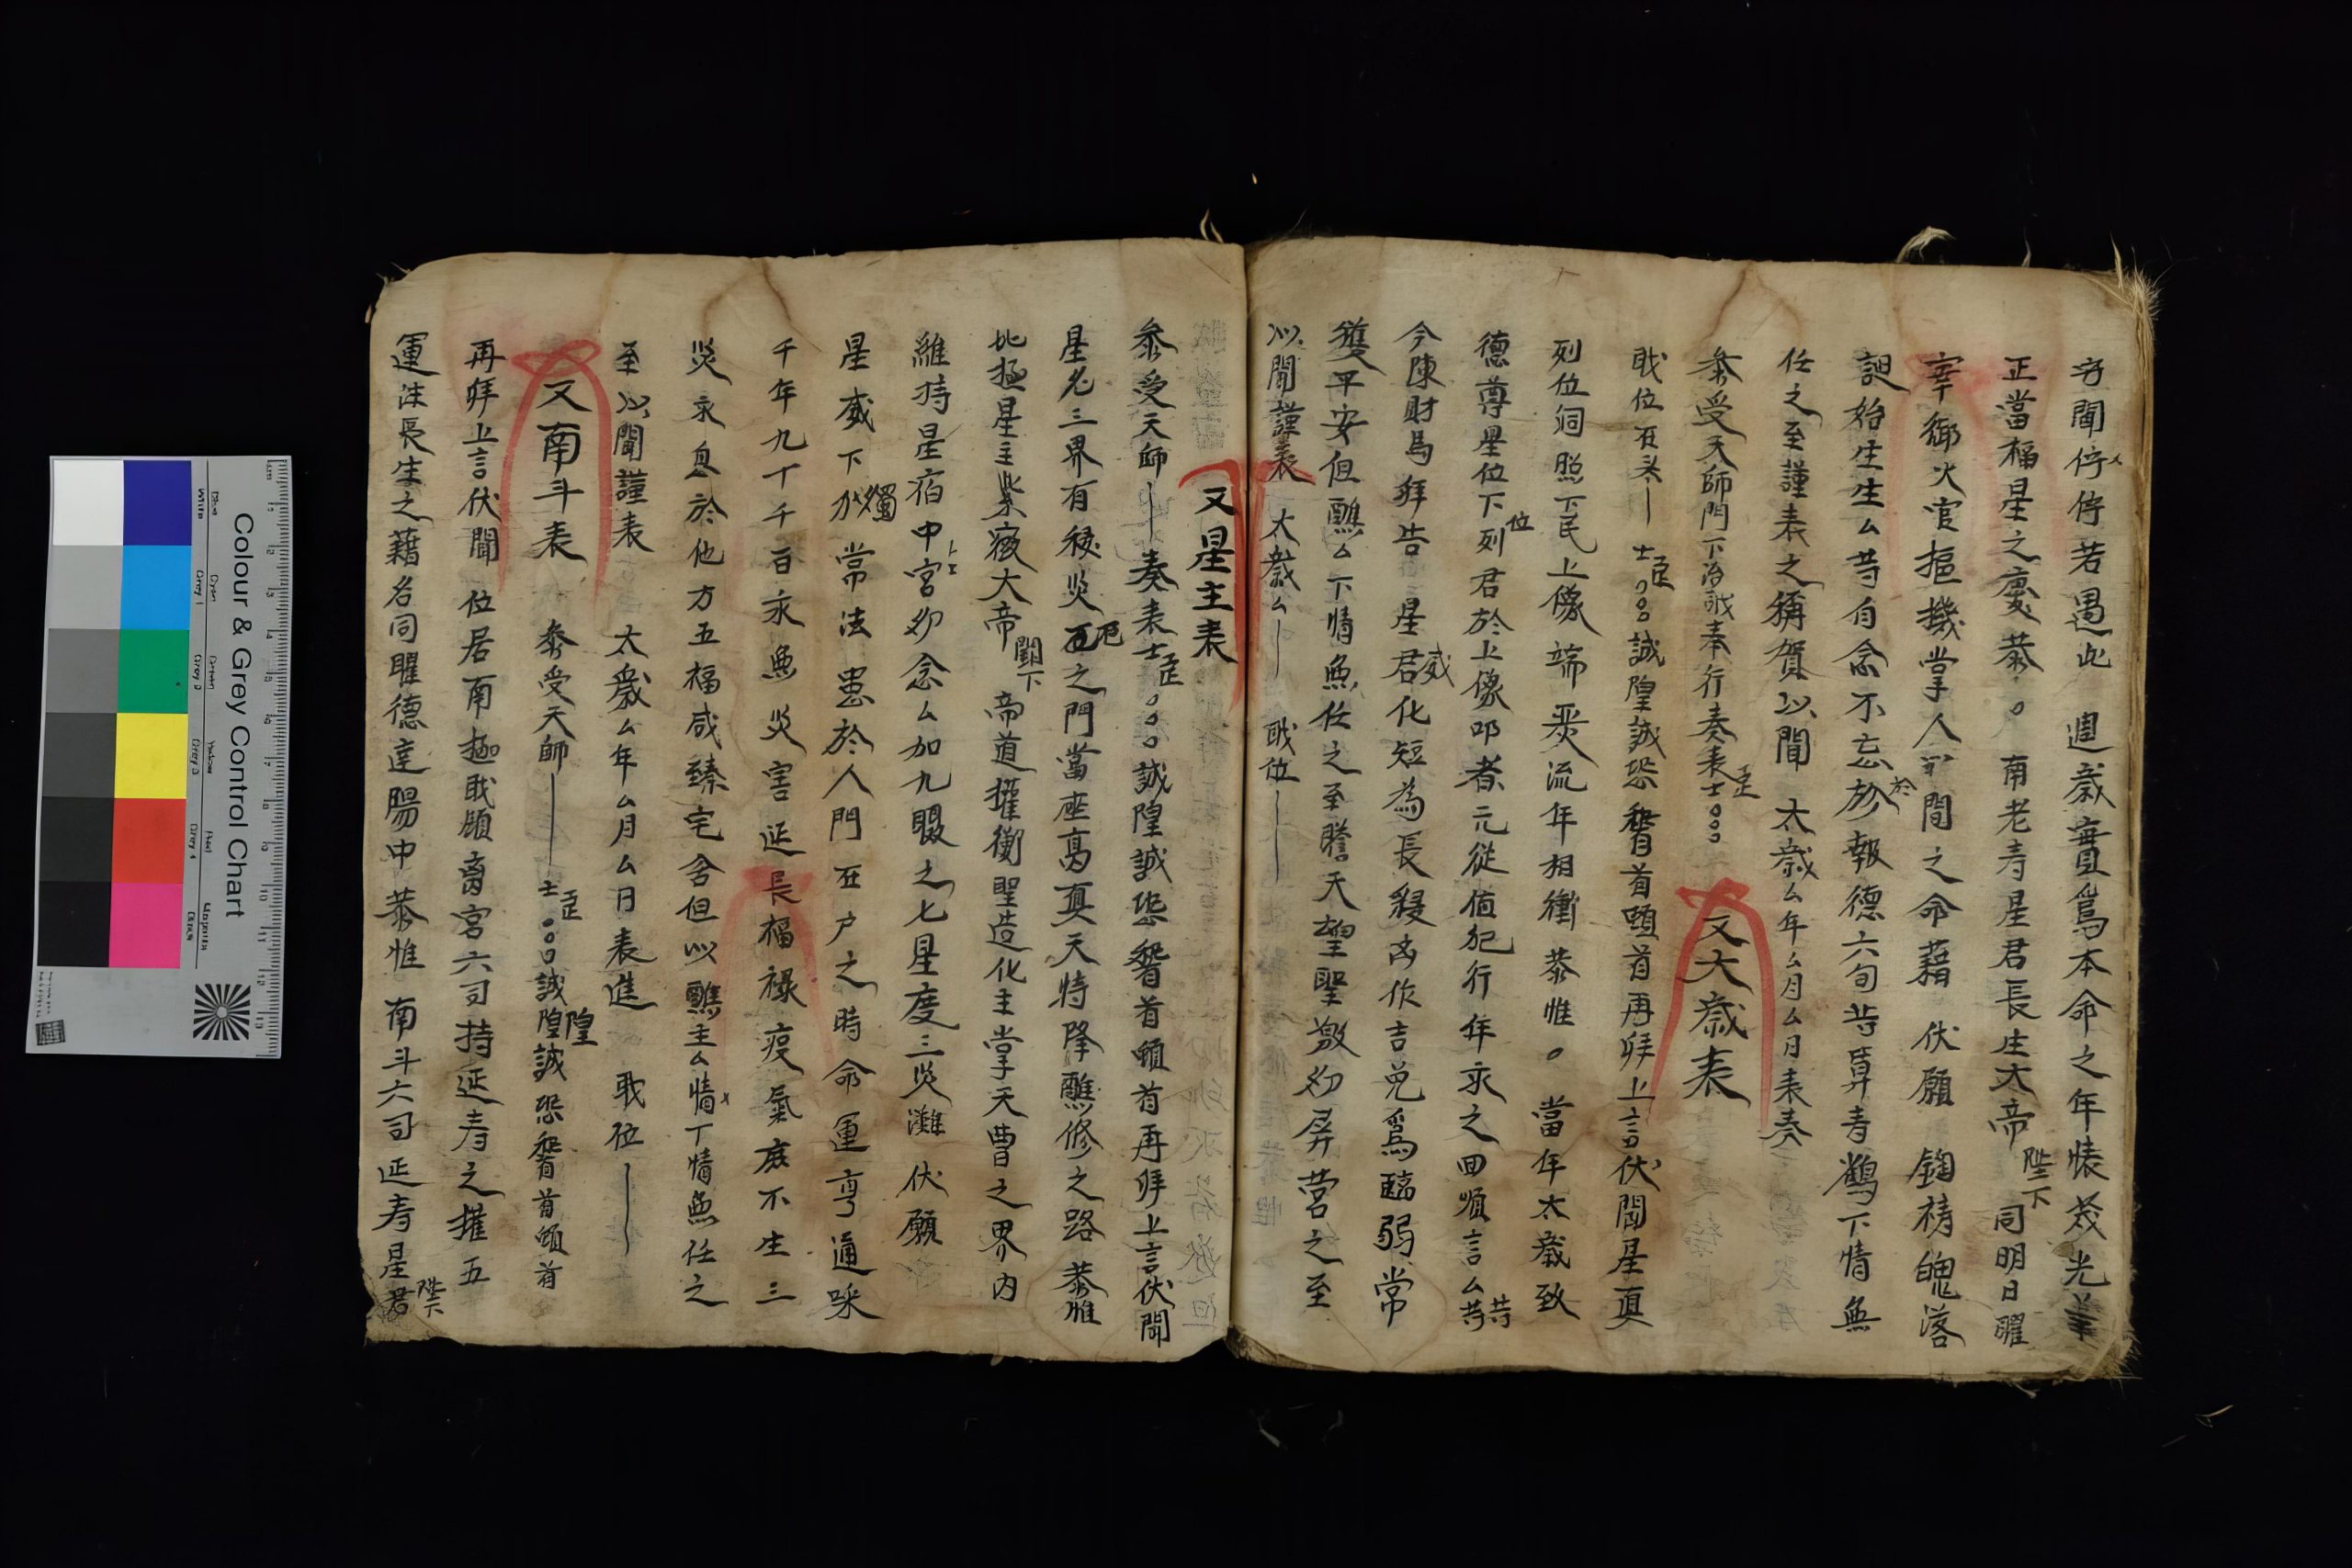 聞停停若遇此 週歲實爲本命之年懐歲光
正當福星之慶恭〇 南老寿星君長生大帝陛下 同明日曜
宰鄉火官樞機掌人間之命藉 伏願 錫禱魄落
誕始生生厶䓁自念不忘於報德六旬䓁算寿鶴下情無
任之至謹表之稱賀以聞 太歲厶年厶月厶日表奏
又太歲表
叅受天師門下治職奉行奏表士臣〇〇〇
戝位在表 士臣〇〇〇誠隍誠恐稽首頓首再拜上言伏聞星真
列位洞照下民上像端災流年相衝恭惟〇當年太歲致
德尊星位下列位君於上像叩者元從值犯行年求之回順言厶䓁
今陳財馬拜告 星君威化短為長殺凶作吉兇爲臨弱常
獲平安但醮厶下情無任之至瞻天望聖激切屏营之至
以聞謹表 太歲厶 戝位
又星主表
叅受天師 奏表士臣〇〇〇誠隍誠恐稽首頓首再拜上言伏聞
星名三界有禄災厄之門當座高真天特降醮修之路恭惟
北極星主紫微大帝闕下 帝道權衡聖造化主掌天曹之界内
維持星宿中宮上主卯念厶加九曜之七星度三災灘 伏願
星威下 燭 常法 患於人門在户之時命運亨通咪
千年九十千百永無災害延長福禄疫氣庶不生三
災永息於他方五福咸臻宅舍但以醮主厶情丁情無任之
至以聞謹表 太歲厶年厶月厶日表進 戝位
又南斗表 叅受天師 士臣〇〇誠隍誠恐稽首頓首
再拜上言伏聞 位居南極戝頒离宮六司持延寿之權五
運注長生之藉名同曜德達陽中恭惟 南斗六司延寿星君陛下